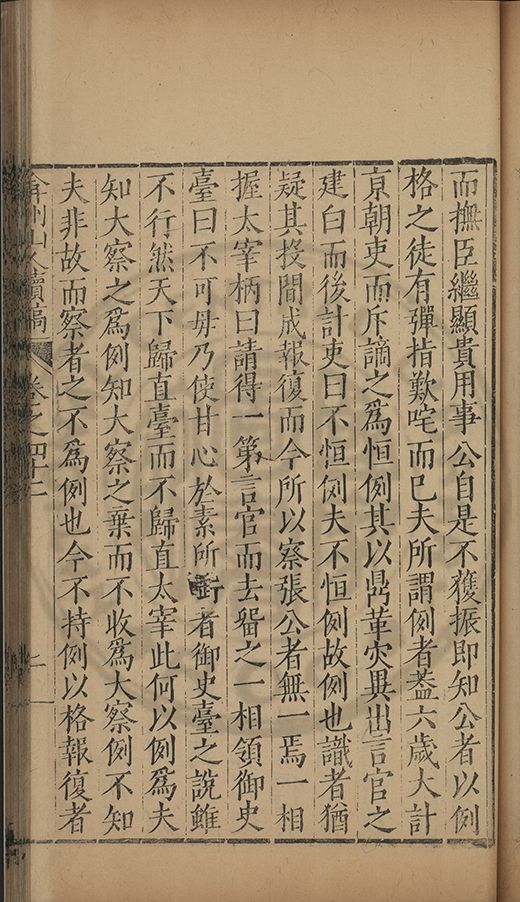 而撫臣繼顯貴用事 公自是不獲振即知公者以例
格之徒有彈指歎咤而已夫所謂例者葢六歲大計
京朝吏而斥謫之爲恒例其以鼎革灾異出言官之
建白而後計吏曰不恒例夫不恒例故例也識者猶
疑其投間成報復而今所以察張公者無一焉一相
握太宰柄曰請得一第言官而去畱之一相領御史
臺曰不可毋乃使甘心於素所衘者御史臺之說雖
不行然天下歸直臺而不歸直太宰此何以例爲夫
知大察之爲例知大察之棄而不收爲大察例不知
夫非故而察者之不爲例也今不持例以格報復者
弇州山人續稿 卷之四十二 二